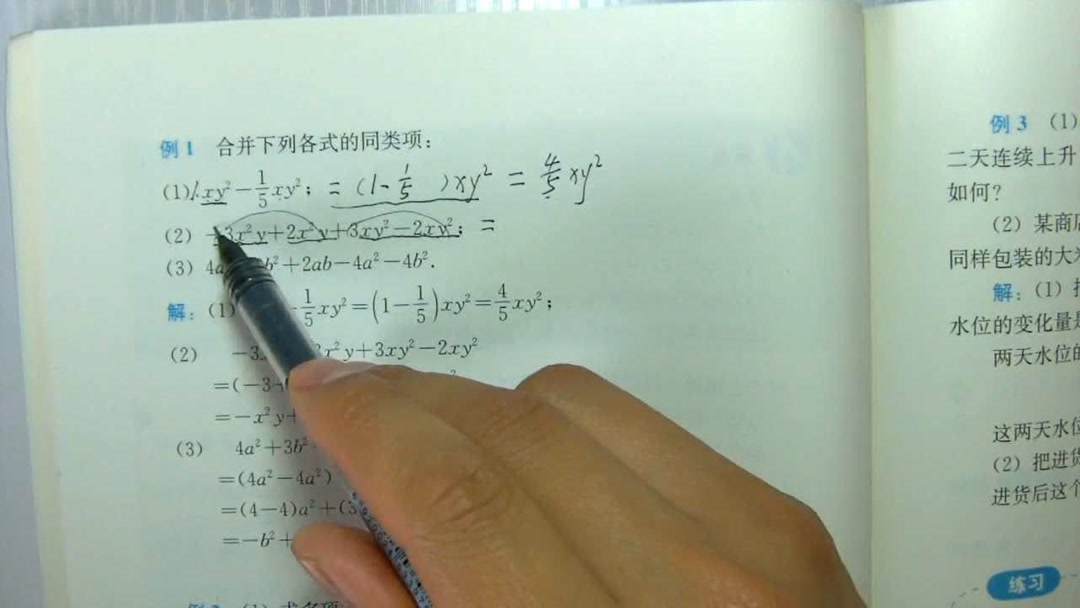 例1 合并下列各式的同类项：
(1) 1·xy²−1/5xy²； = (1-1/5 )xy² = 4/5 xy²
(2) −3x²y+2x²y+3xy²−2xy²； =
(3) 4a b²+2ab−4a²−4b².
解：(1) −1/5xy²=(1−1/5)xy²=4/5xy²；
(2) −3 x²y+3xy²−2xy²
=(−3
=−x²y+
(3) 4a²+3b²
=(4a²−4a²)
=(4−4)a²+(3
=−b²+
例3 (1)
二天连续上升
如何？
(2) 某商
同样包装的大
解：(1)
水位的变化量
两天水位
这两天水位
(2) 把进货
进货后这个
练习